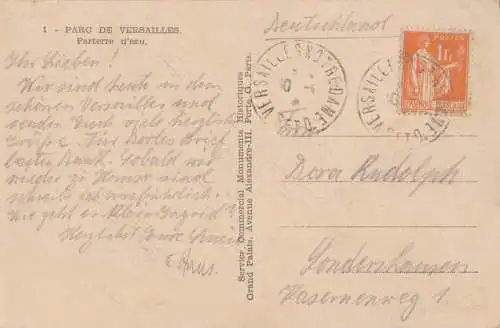 1 - PARC DE VERSAILLES.
Parterre d'eau.
Ihr Lieben!
Wir sind heute in dem
schönen Versailles und
senden Euch viele herzliche
Grüße. Für Brief
besten Dank. Sobald wir
wieder zu Hause sind
schreibe ich ausführlich.
Wie geht es Klein Ingrid?
Herzlichst Eure
Service Commercial Monuments Historiques
Grand Palais, Avenue Alexandre-III, Porte G, Paris.
Deutschland
VERSAILLES NOTRE DAME
VERSAILLES
POSTES
1F
Dora Rudolph
Sondershausen
Kasernenweg 1.